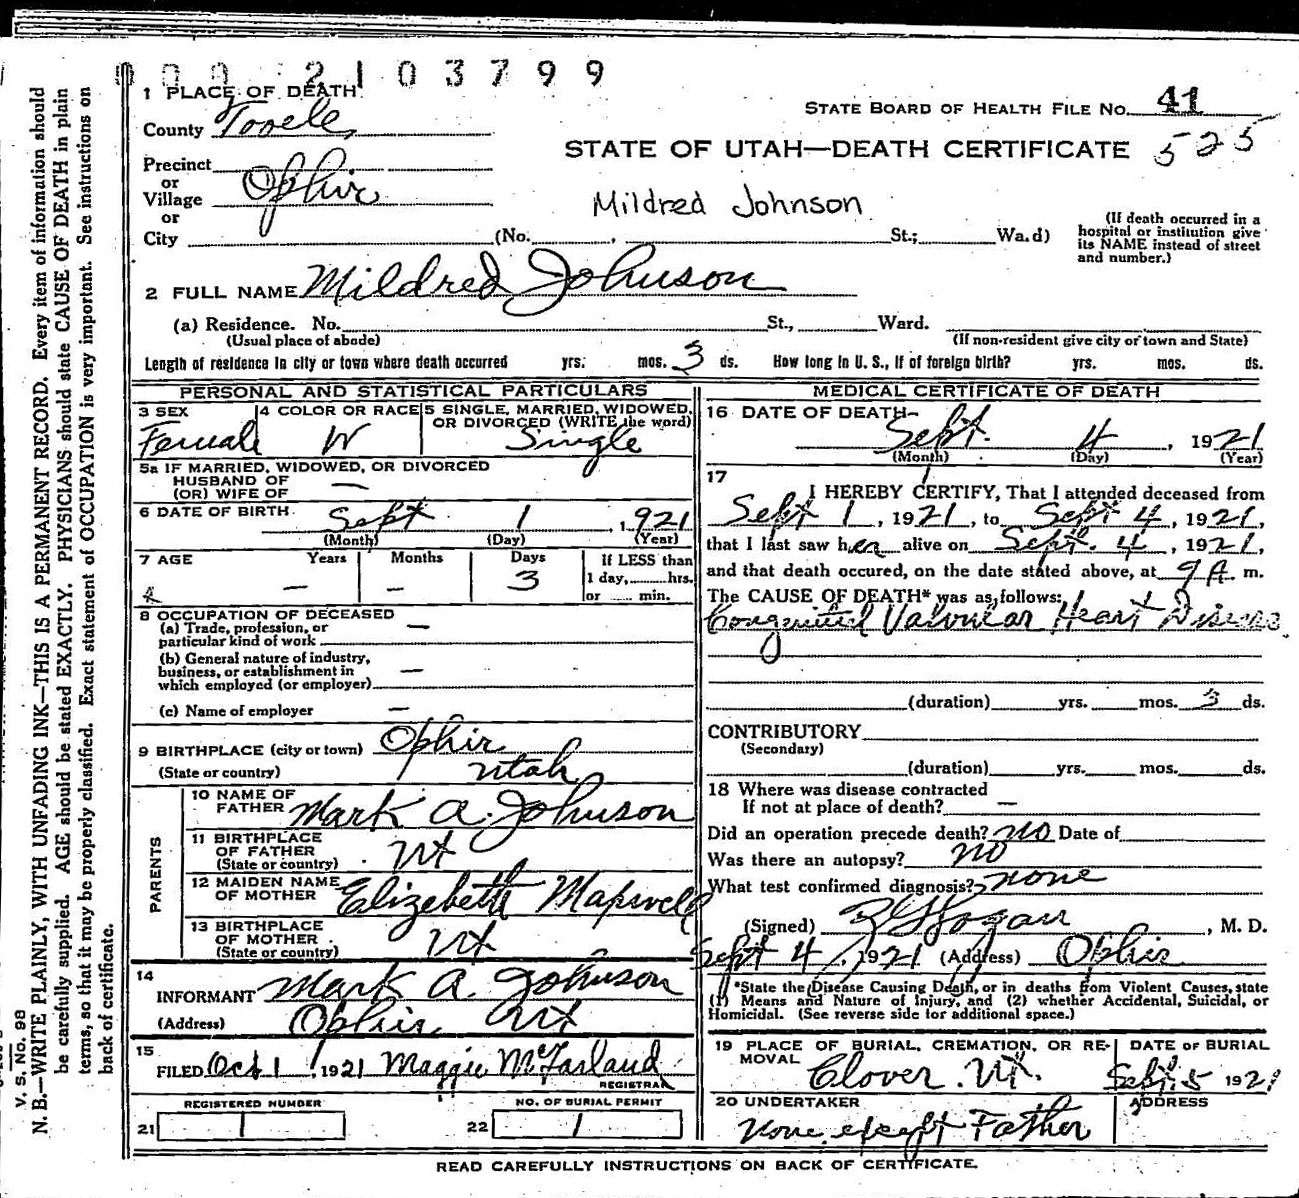 000 2103799
1 PLACE OF DEATH
STATE BOARD OF HEALTH FILE No. 41
County Tooele
525
STATE OF UTAH—DEATH CERTIFICATE
Precinct
or
Village Ophir
or
Mildred Johnson
City (No. , St.; Wa.d)
(If death occurred in a
hospital or institution give
its NAME instead of street
and number.)
2 FULL NAME Mildred Johnson
(a) Residence. No. St., Ward.
(Usual place of abode) (If non-resident give city or town and State)
Length of residence in city or town where death occurred yrs. mos. 3 ds. How long in U. S., if of foreign birth? yrs. mos. ds.
PERSONAL AND STATISTICAL PARTICULARS
3 SEX 4 COLOR OR RACE 5 SINGLE, MARRIED, WIDOWED,
OR DIVORCED (WRITE the word)
Female W Single
5a IF MARRIED, WIDOWED, OR DIVORCED
HUSBAND OF
(OR) WIFE OF —
6 DATE OF BIRTH Sept 1, 1921
(Month) (Day) (Year)
7 AGE Years Months Days If LESS than
— — 3 1 day,......hrs.
or ...... min.
8 OCCUPATION OF DECEASED
(a) Trade, profession, or
particular kind of work —
(b) General nature of industry,
business, or establishment in
which employed (or employer) —
(c) Name of employer —
9 BIRTHPLACE (city or town) Ophir
(State or country) Utah
PARENTS
10 NAME OF
FATHER Mark A. Johnson
11 BIRTHPLACE
OF FATHER
(State or country) Ut
12 MAIDEN NAME
OF MOTHER Elizebeth
13 BIRTHPLACE
OF MOTHER
(State or country) Ut
14
INFORMANT Mark A. Johnson
(Address) Ophir Ut
15
FILED Oct 1, 1921 Maggie McFarland
REGISTRAR
REGISTERED NUMBER NO. OF BURIAL PERMIT
21 1 22 1
MEDICAL CERTIFICATE OF DEATH
16 DATE OF DEATH—
Sept. 4, 1921
(Month) (Day) (Year)
17
I HEREBY CERTIFY, That I attended deceased from
Sept 1, 1921, to Sept 4, 1921,
that I last saw her alive on Sept. 4, 1921,
and that death occured, on the date stated above, at 9 A. m.
The CAUSE OF DEATH* was as follows:
Congenital Valvular Heart Disease
(duration) yrs. mos. 3 ds.
CONTRIBUTORY
(Secondary)
(duration) yrs. mos. ds.
18 Where was disease contracted
If not at place of death? —
Did an operation precede death? no Date of
Was there an autopsy? no
What test confirmed diagnosis? none
(Signed) , M. D.
Sept 4, 1921 (Address) Ophir
*State the Disease Causing Death, or in deaths from Violent Causes, state
(1) Means and Nature of Injury, and (2) whether Accidental, Suicidal, or
Homicidal. (See reverse side for additional space.)
19 PLACE OF BURIAL, CREMATION, OR RE-
MOVAL
DATE OF BURIAL
Clover Ut. Sept. 5 1921
20 UNDERTAKER ADDRESS
None except Father
READ CAREFULLY INSTRUCTIONS ON BACK OF CERTIFICATE.
V. S. No. 98
N. B.—WRITE PLAINLY, WITH UNFADING INK—THIS IS A PERMANENT RECORD. Every item of information should
be carefully supplied. AGE should be stated EXACTLY. PHYSICIANS should state CAUSE OF DEATH in plain
terms, so that it may be properly classified. Exact statement of OCCUPATION is very important. See instructions on
back of certificate.